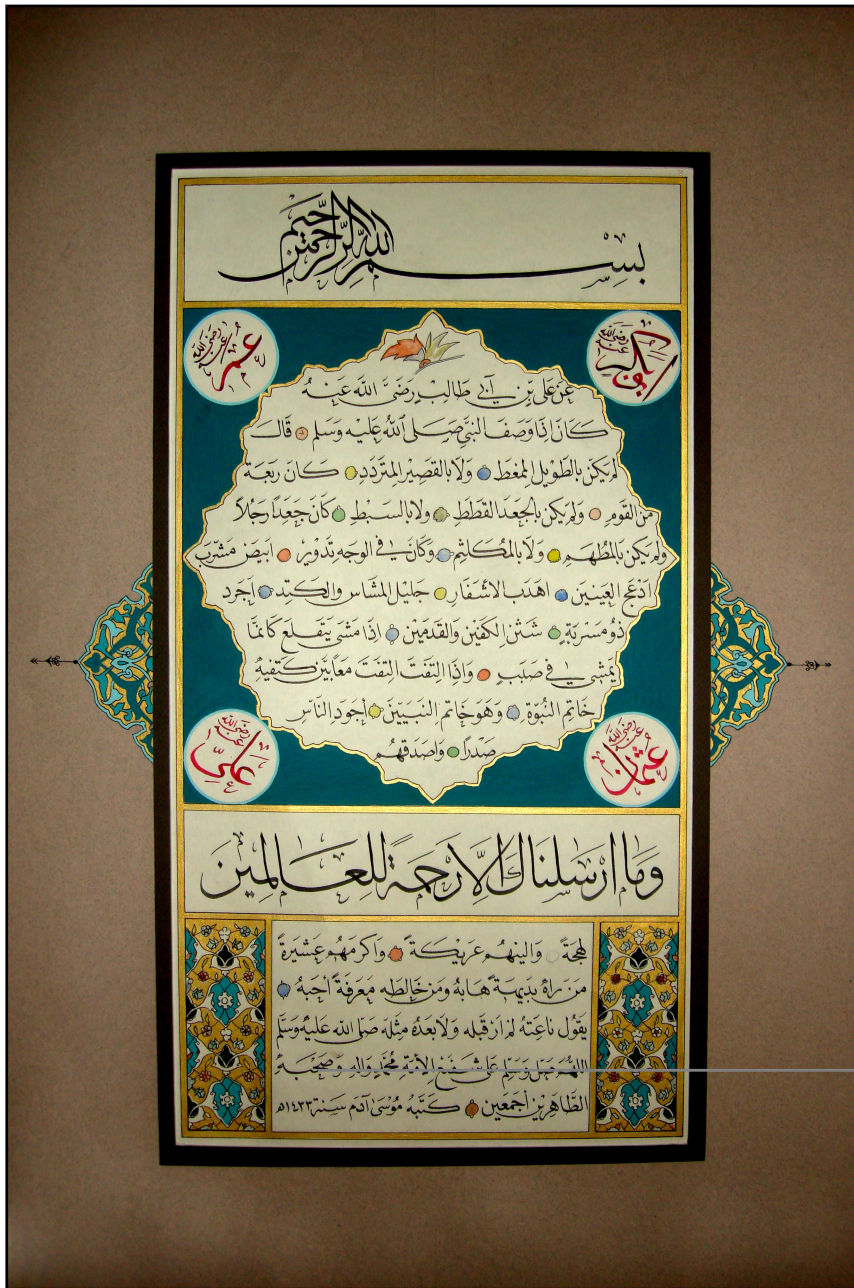 بسم الله الرحمن الرحيم
ابو بكر رضي الله عنه
عمر رضي الله عنه
عن علي بن ابي طالب رضي الله عنه
كان اذا وصف النبي صلى الله عليه وسلم قال
لم يكن بالطويل الممغط ولا بالقصير المتردد كان ربعة
من القوم ولم يكن بالجعد القطط ولا بالسبط كان جعدا رجلا
ولم يكن بالمطهم ولا بالمكلثم وكان في الوجه تدوير ابيض مشرب
ادعج العينين اهدب الاشفار جليل المشاش والكتد اجرد
ذو مسربة شثن الكفين والقدمين اذا مشى يتقلع كانما
يمشي في صبب واذا التفت التفت معا بين كتفيه
خاتم النبوة وهو خاتم النبيين اجود الناس
صدرا واصدقهم
عثمان رضي الله عنه
علي رضي الله عنه
وما ارسلناك الا رحمة للعالمين
لهجة والينهم عريكة واكرمهم عشيرة
من راه بديهة هابه ومن خالطه معرفة احبه
يقول ناعته لم ار قبله ولا بعده مثله صلى الله عليه وسلم
اللهم صل وسلم على شفيع الامة محمد واله وصحبه
الطاهرين اجمعين كتبه موسى آدم سنة ١٤٢٣ه